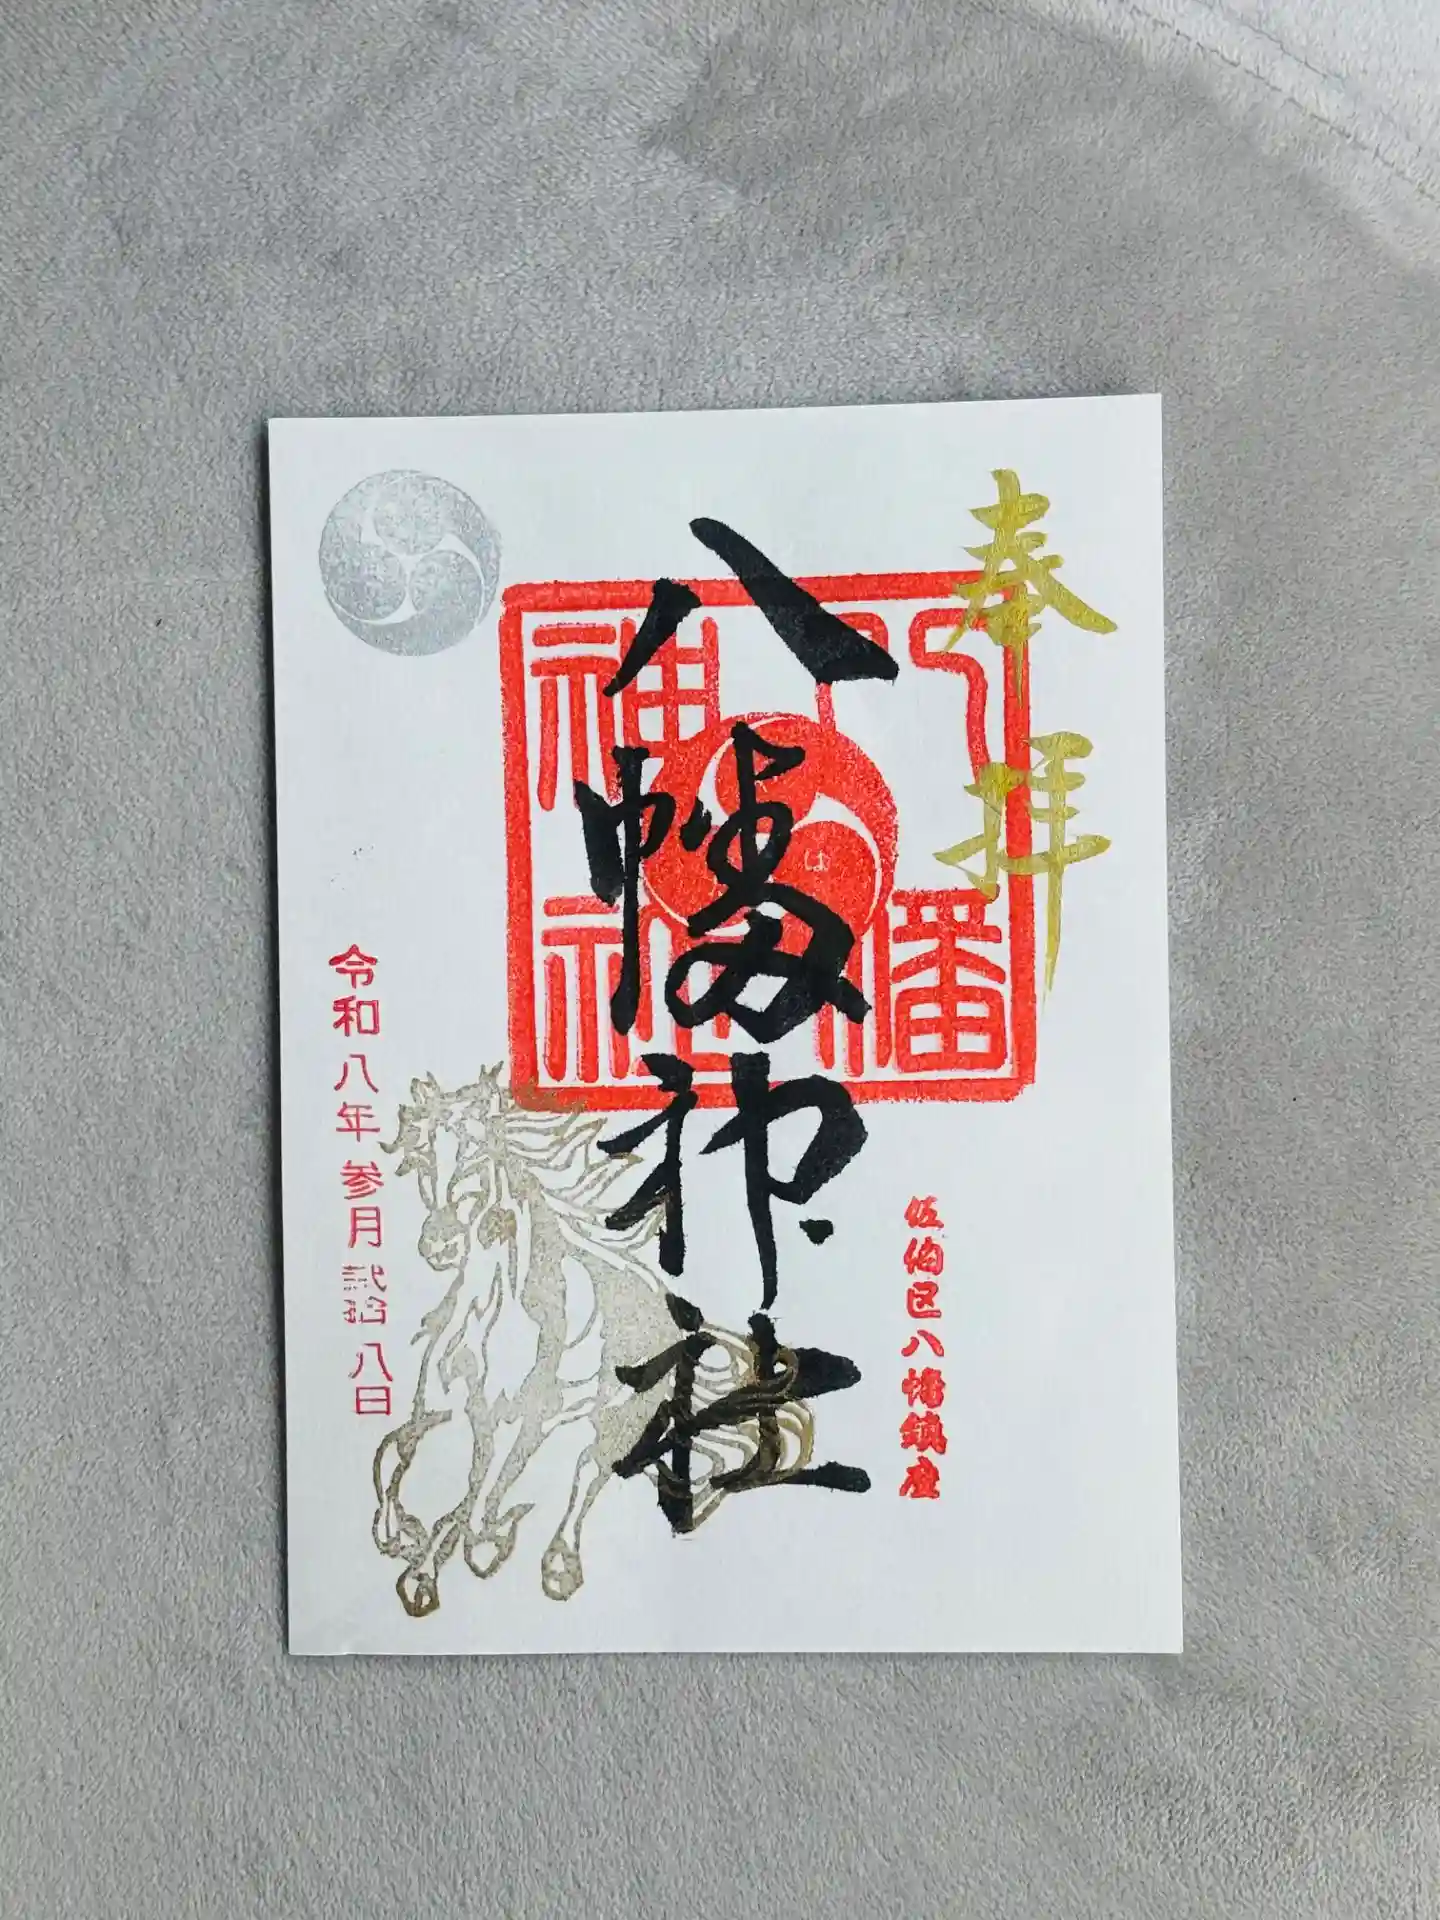 奉拝
八幡神社
八幡
神社
は
佐伯区八幡鎮座
令和八年参月弐拾八日